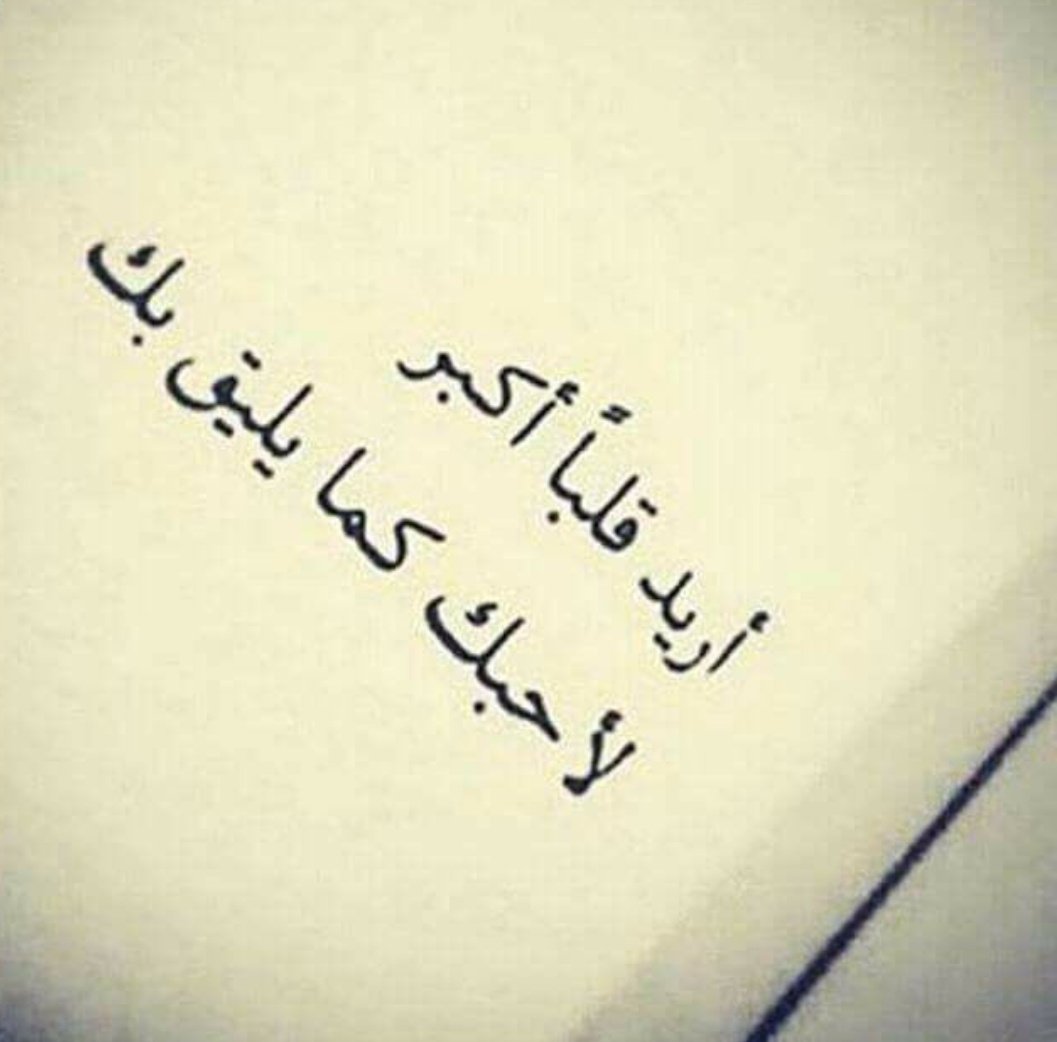 أريد قلباً أكبر
لأحبك كما يليق بك